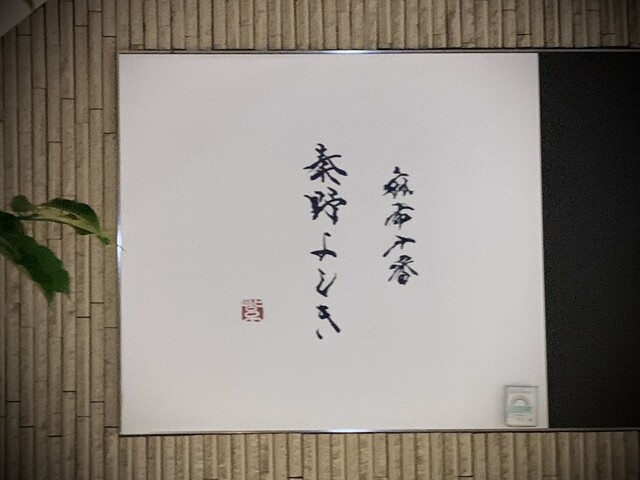 麻布十番
秦野よしき